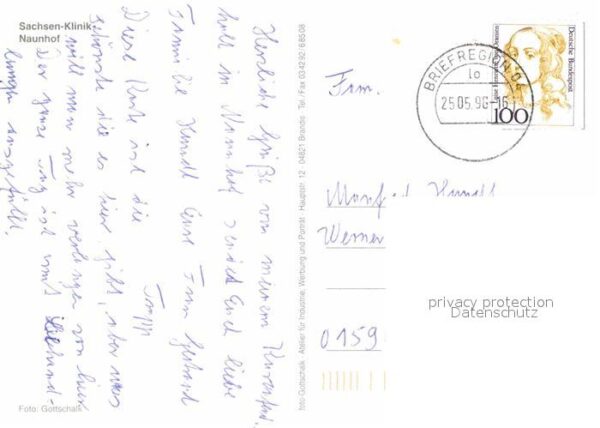 Sachsen-Klinik
Naunhof
Herzliche Grüße von meinem Kuraufent-
halt in Naunhof sendet Euch liebe
Familie Hundt Eure Frau Gerhard
Trapp
Diese Karte ist die
schönste die es hier gibt, aber was
will man mehr verlangen von hier
Der ganze Tag ist mit Behand-
lungen ausgefüllt.
Foto: Gottschalk
foto-Gottschalk Atelier für Industrie, Werbung und Porträt Hauptstr. 12 · 04821 Brandis Tel./Fax 034292/68508
BRIEFREGION 04
lo
25.05.96-16
Deutsche Bundespost
100
Fam.
Manfred Hundt
Werner
0159
privacy protection
Datenschutz